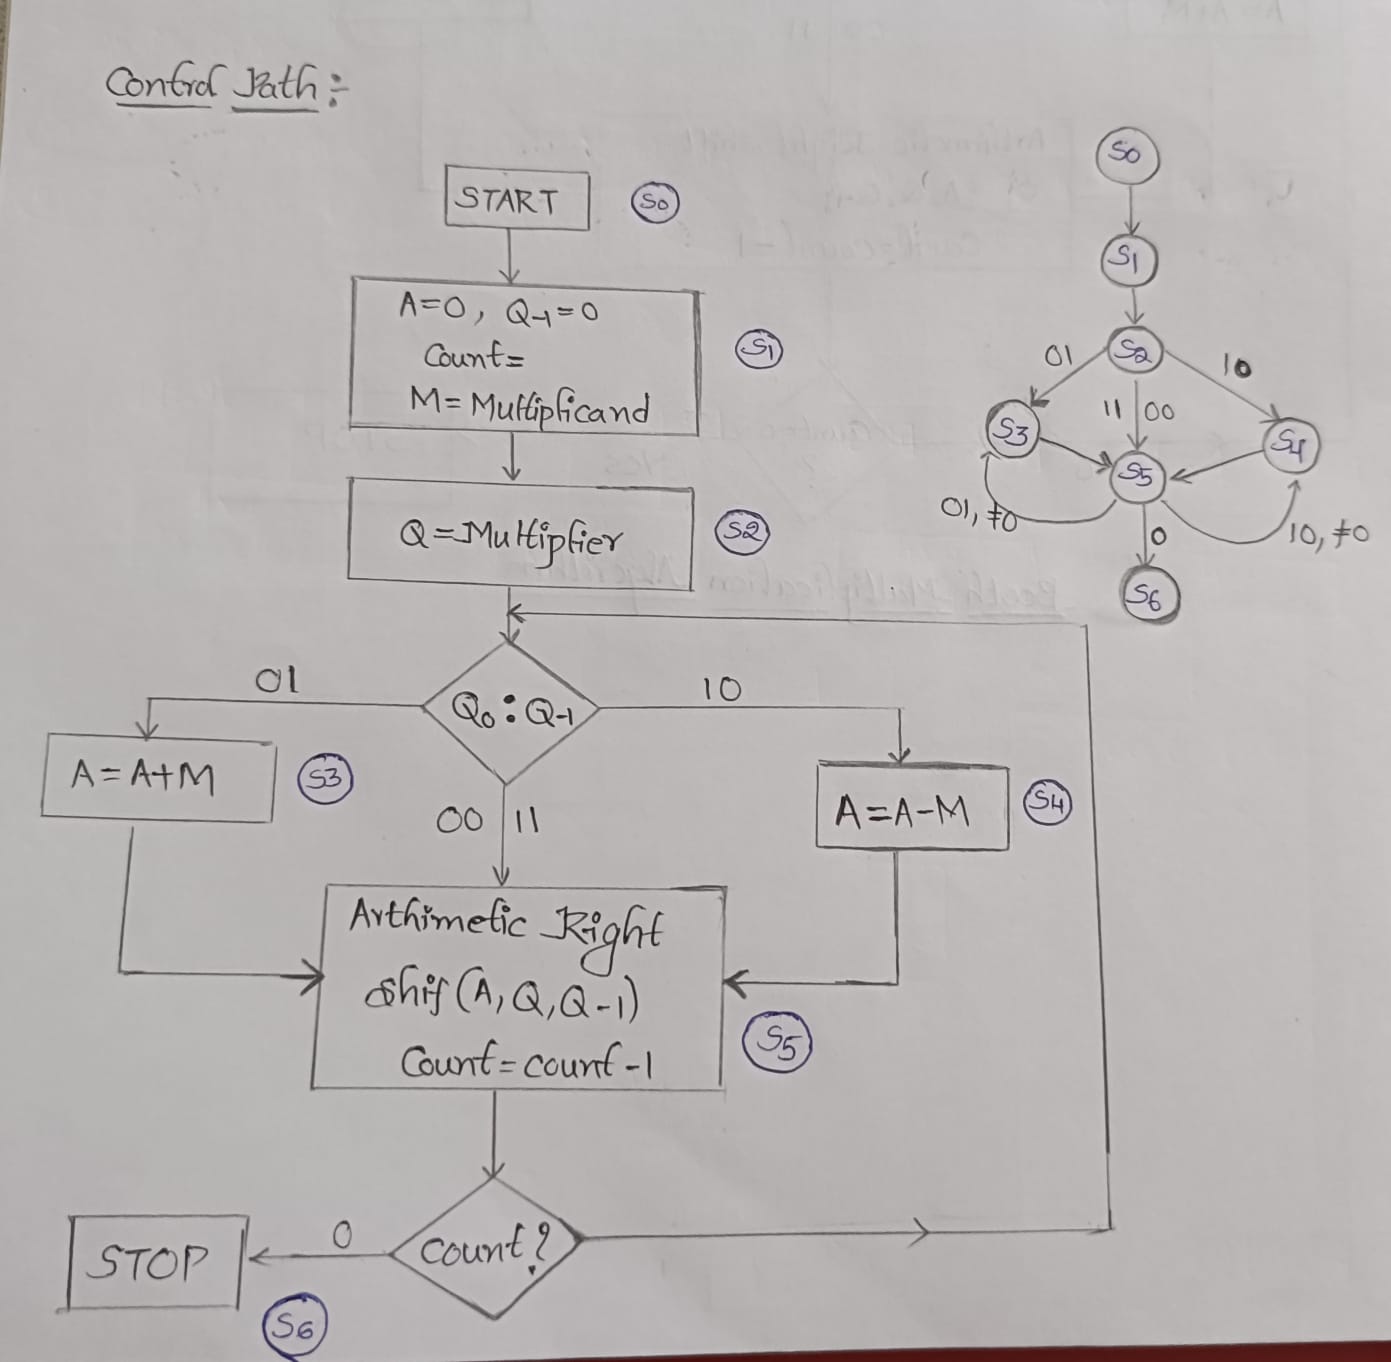 Control Path:-
START
S0
A=0, Q-1=0
Count=
M=Multiplicand
S1
Q=Multiplier
S2
Q0:Q-1
01
10
00 11
A=A+M
S3
A=A-M
S4
Arthimetic Right
Shif (A, Q, Q-1)
Count=count-1
S5
Count?
0
STOP
S6
S0
S1
S2
01
10
11 00
S3
S4
S5
01, ≠0
10, ≠0
0
S6